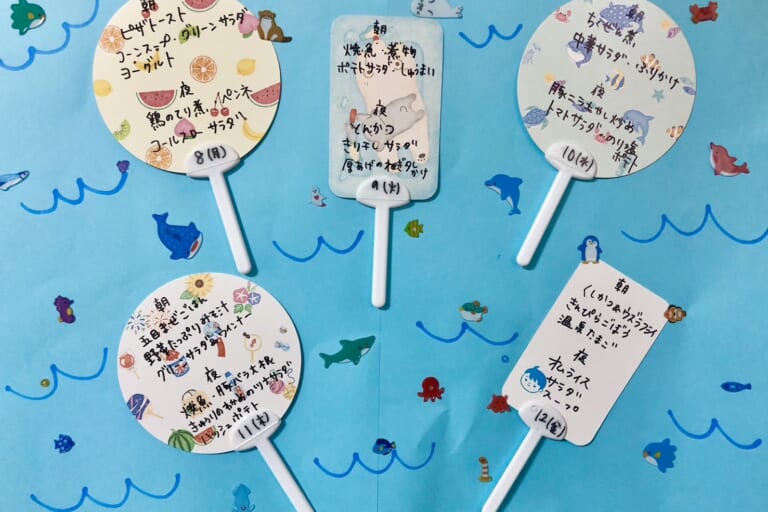 朝
ピザトースト
コーンスープ・グリーンサラダ
ヨーグルト
夜
鶏のてり煮・ペンネ
コールスローサラダ
8(月)
朝
焼魚・煮物
ポテトサラダ・しゅうまい
夜
とんかつ
きり干しサラダ
厚あげのねぎダレかけ
9(火)
朝
ちくぜん煮
中華サラダ・ふりかけ
夜
豚ニラもやし炒め
トマトサラダ・のり塩
ポテト
10(水)
朝
五目まぜごはん
野菜たっぷりみそ汁
グリーンサラダ・ウインナー
夜
焼魚・豚バラ大根
きゅうりのわかめのツナサラダ
ハッシュポテト
11(木)
朝
くしかつ(ウズラフライ
きんぴらごぼう
温泉たまご
夜
オムライス
サラダ
スープ
12(金)